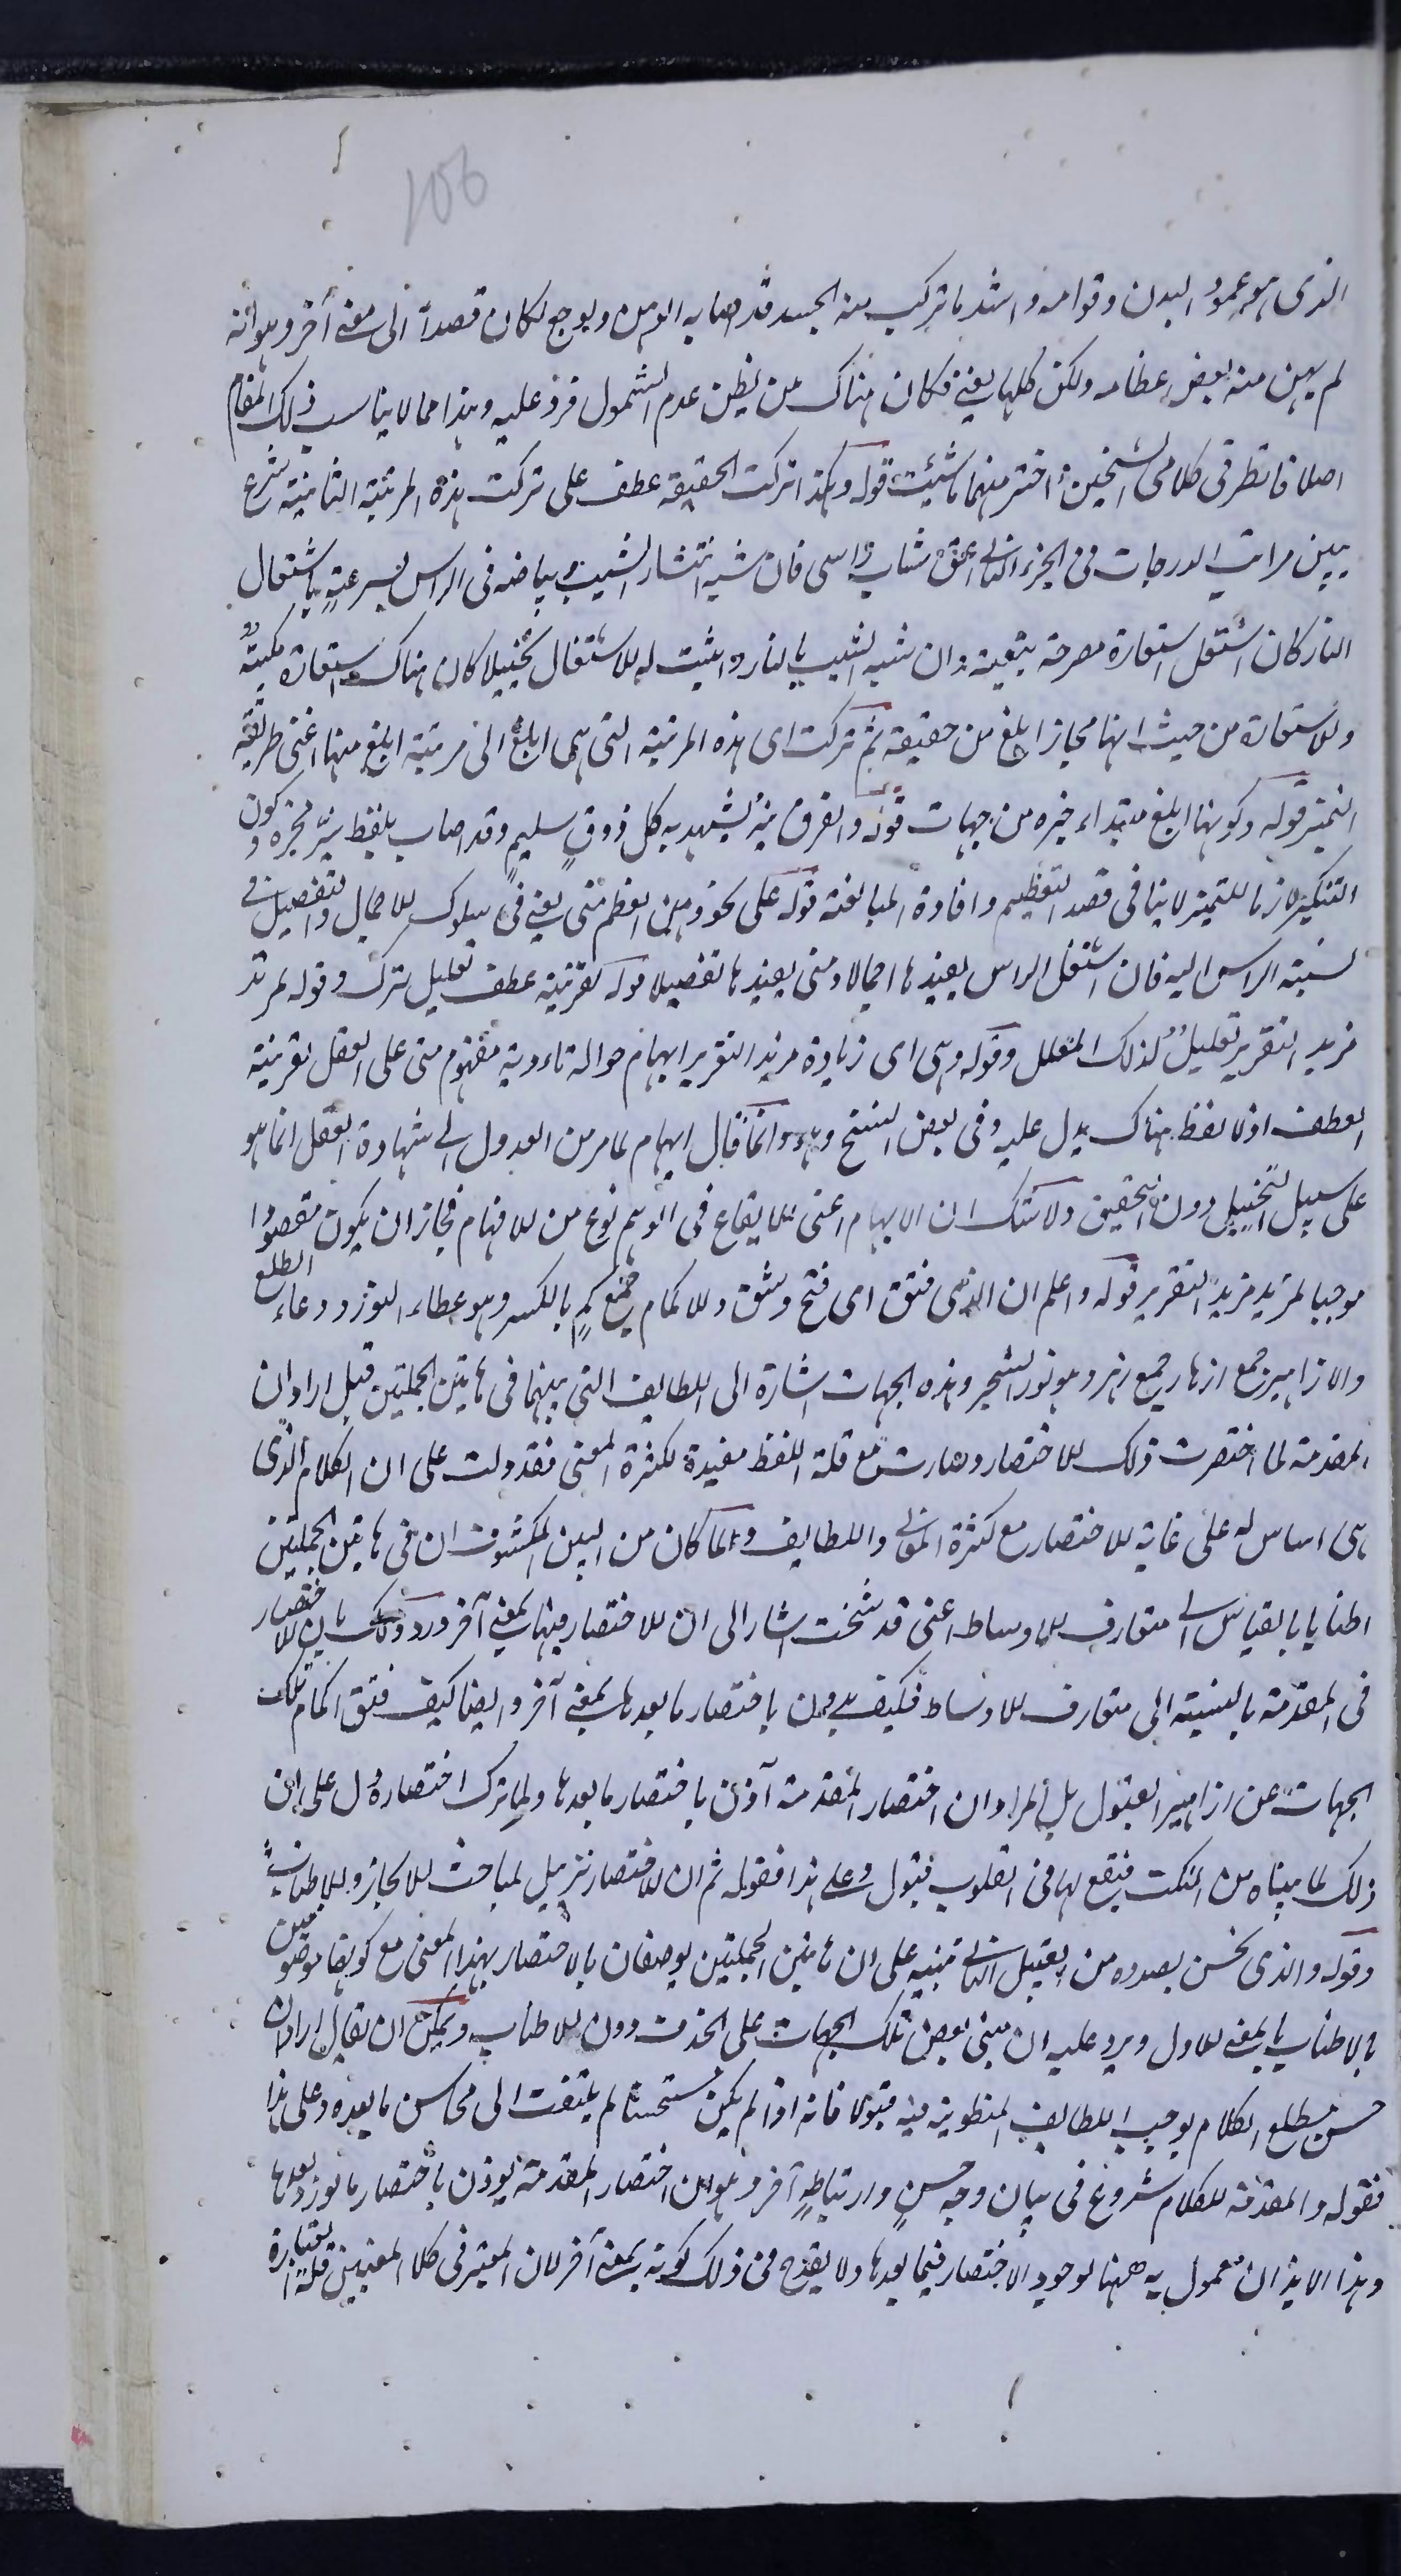 106
الذى هو عمود البدن وقوامه واشد ما تركب منه الجسد قد اصابه الوهن ولو جمع لكان قصدا الى معنى آخر وهو انه
لم يهن منه بعض عظامه ولكن كلها يعنى فكان هناك من يظن عدم الشمول فرد عليه وهذا مما لا يناسب ذلك المقام
اصلا فانظر فى كلامى الشيخين اختر منهما ما شئت قوله وكذا تركت الحقيقة عطف على تركت هذه المرتبة الثانية شرع
يبين مراتب الدرجات فى الجزء الثانى اعنى شاب راسى فان شبه انتشار الشيب وبياضه فى الراس بسرعة باشتعال
النار كان اشتعل استعارة مصرحة تبعية وان شبه الشيب بالنار واثبت له الاشتعال تخييلا كان هناك استعارة مكنية
والاستعارة من حيث انها مجاز ابلغ من حقيقة ثم تركت اى هذه المرتبة التى هى ابلغ الى مرتبة ابلغ منها اعنى طريقة
التميز قوله وكونها ابلغ مبتداء خبره من جهات قوله والفرق نير يشهد به كل ذوق سليم وقد اصاب بلفظ نير محزه وكون
التنكير لازما للتميز لا ينافى قصد التعظيم وافادة المبالغة قوله على نحو وهن العظم منى يعنى فى سلوك الاجمال والتفصيل فى
نسبة الراس اليه فان اشتعل الراس يفيدها اجمالا ومنى يفيدها تفصيلا قوله لقرينة عطف تعليل لترك وقوله لمزيد
مزيد التقرير تعليل لذلك المعلل وقوله وهى اى زيادة مزيد التقرير ايهام حوالة تادية مفهوم منى على العقل بقرينة
العطف اذ لا لفظ هناك يدل عليه وفى بعض النسخ وهو وانما قال ايهام لما مر من العدول الى شهادة العقل انما هو
على سبيل التخييل دون التحقيق ولا شك ان الايهام اعنى الايقاع فى الوهم نوع من الافهام فجاز ان يكون مقصودا
موجبا لمزيد مزيد التقرير قوله واعلم ان الذى فتق اى فتح وشق والاكمام جمع كم بالكسر وهو غطاء النور ووعاء الطلع
والازاهير جمع ازهار جمع زهر وهو نور الشجر وهذه الجهات اشارة الى اللطايف التى بينها فى هاتين الجملتين قيل اراد ان
المقدمة لما اختصرت ذلك الاختصار وصارت مع قلة اللفظ مفيدة لكثرة المعنى فقد دلت على ان الكلام الذى
هى اساس له على غاية الاختصار مع كثرة المعانى واللطايف ولما كان من البين المكشوف ان فى هاتين الجملتين
اطنابا بالقياس الى متعارف الاوساط اعنى قد شخت اشار الى ان الاختصار فيهما بمعنى آخر ورد ذلك بان الاختصار
فى المقدمة بالنسبة الى متعارف الاوساط فكيف يوذن باختصار ما بعدها بمعنى آخر وايضا كيف فتق اكمام تلك
الجهات عن ازاهير القبول بل المراد ان اختصار المقدمة آذن باختصار ما بعدها ولما ترك اختصاره دل على ان
ذلك لما بيناه من النكت فيقع لها فى القلوب قبول وعلى هذا فقوله ثم ان الاختصار تنزيل لمباحث الايجاز والاطناب
وقوله والذى نحن بصدده من القبيل الثانى تنبيه على ان هاتين الجملتين يوصفان بالاختصار بهذا المعنى مع كونهما موصوفتين
بالاطناب بالمعنى الاول ويرد عليه ان مبنى بعض تلك الجهات على الحذف دون الاطناب ويمكن ان يقال اراد ان
حسن مطلع الكلام يوجب اللطايف المنطوية فيه قبولا فانه اذا لم يكن مستحسنا لم يلتفت الى محاسن ما بعده وعلى هذا
فقوله والمقدمة للكلام شروع فى بيان وجه حسن وارتباط آخر وهو ان اختصار المقدمة يوذن باختصار ما يورد بعدها
وهذا الايذان معمول به ههنا لوجود الاختصار فيما بعدها ولا يقدح فى ذلك كونه بمعنى آخر لان المعتبر فى كلا المعنيين قلة العبارة